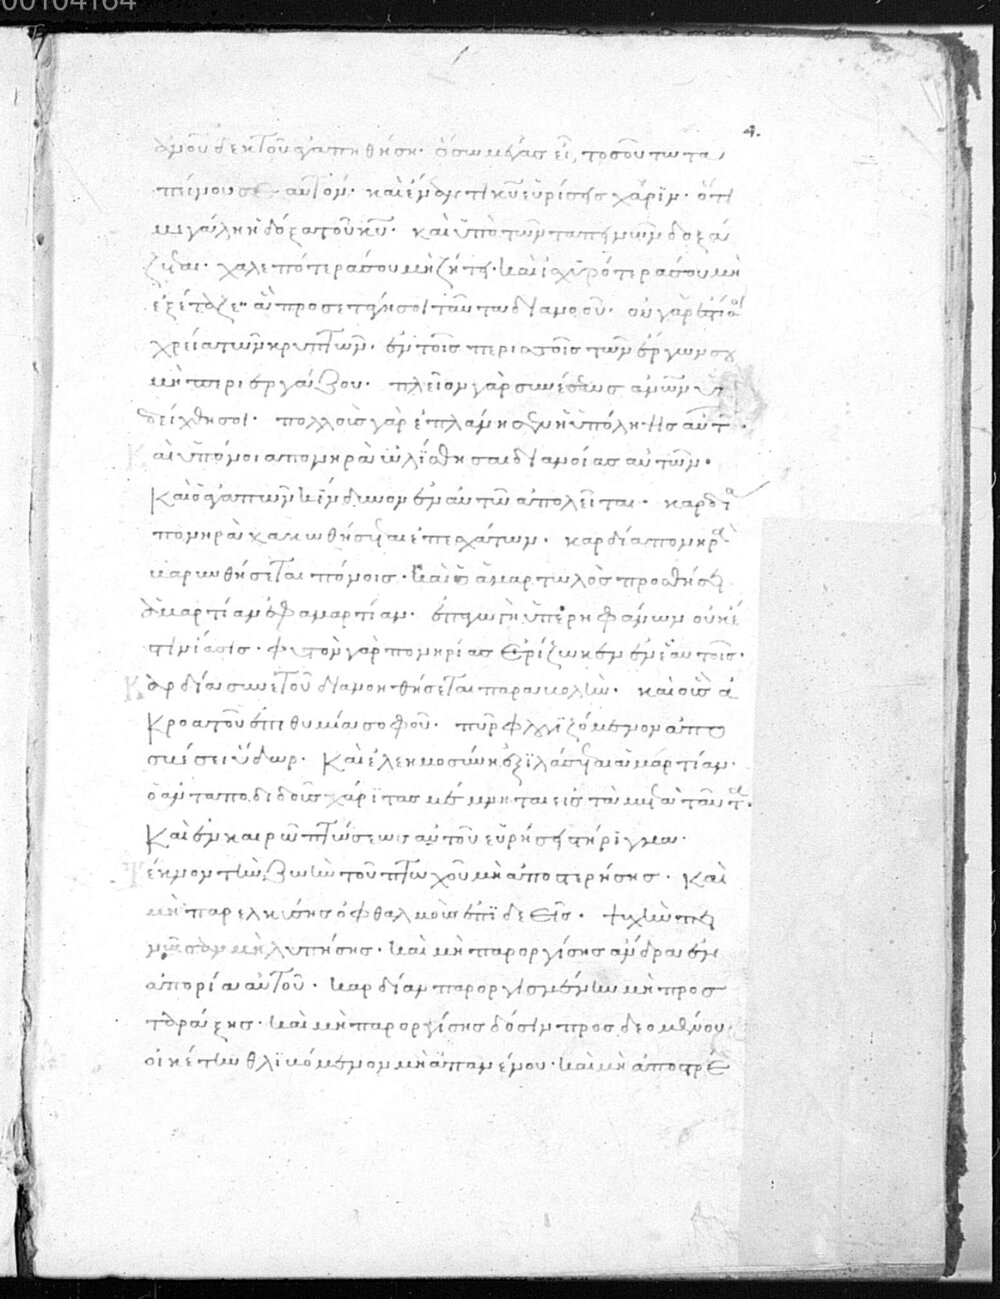 ἀνοῦ δεκτοῦ ἀγαπηθήση· ὅσω μέγας εἶ, τοσούτω τα
πείνου σεαυτόν· καὶ ἔναντι κυ εὑρήσεις χάριν· ὅτι
μεγάλη ἡ δόξα τοῦ κυ· καὶ ὑπὸ τῶν ταπεινῶν δοξά
ζεται· χαλεπότερά σου μὴ ζήτει· καὶ ἰσχυρότερά σου μὴ
ἐξέταζε· ἃ προσετάγη σοι ταῦτα διανοοῦ· οὐ γάρ ἐστί σοι
χρεία τῶν κρυπτῶν· ἐν τοῖς περισσοῖς τῶν ἔργων σου
μὴ περιεργάζου· πλείονα γὰρ συνέσεως ἀνων ὑπε
δείχθη σοι· πολλοὺς γὰρ ἐπλάνησεν ἡ ὑπόληψις αὐτῶν·
καὶ ὑπόνοια πονηρὰ ὠλίσθησε διανοίας αὐτῶν·
Καὶ ὁ ἀγαπῶν κίνδυνον ἐν αὐτῶ ἀπολεῖται· καρδία
πονηρὰ κακωθήσεται ἐπ' ἐσχάτων· καρδία πονηρὰ
βαρυνθήσεται πόνοις· καὶ ὁ ἁμαρτωλὸς προσθήσει
ἁμαρτίαν ἐφ ἁμαρτίαν· ἐπαγωγὴ ὑπερηφάνων οὐκ ἔ
στιν ἴασις· φυτὸν γὰρ πονηρίας ἐρίζωκεν ἐν ἑαυτοῖς·
Καρδία συνετοῦ διανοηθήσεται παραβολὴν· καὶ οὖς ἀ
κροατοῦ ἐπιθυμία σοφοῦ· πῦρ φλογιζόμενον ἀπο
σβέσει ὕδωρ· Καὶ ἐλεημοσύνη ἐξιλάσεται ἁμαρτίαν·
ὁ ἀνταποδιδοὺς χάριτας μέμνηται εἰς τὰ μετὰ ταῦτα·
Καὶ ἐν καιρῶ πτώσεως αὐτοῦ εὑρήσει στήριγμα·
Τέκνον τὴν ζωὴν τοῦ πτωχοῦ μὴ ἀποστερήσης· Καὶ
μὴ παρελκύσης ὀφθαλμοὺς ἐπιδεεῖς· ψυχὴν πει
νῶσαν μὴ λυπήσης· καὶ μὴ παροργίσης ἄνδρα ἐν
ἀπορία αὐτοῦ· καρδίαν παροργισμένην μὴ προσ
ταράξης· καὶ μὴ παροργίσης δόσιν προσδεομένου·
οἰκέτην θλιβόμενον μὴ ἀπαναίνου· καὶ μὴ ἀποστρέ
4.